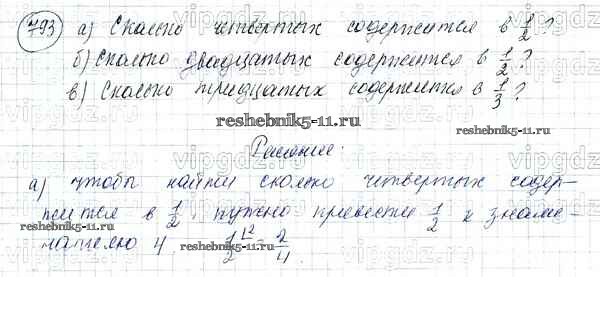 793 а) Сколько четвертых содержится в 1/2?
б) Сколько двадцатых содержится в 1/2?
в) Сколько тридцатых содержится в 1/3?
reshebnik5-11.ru
reshebnik5-11.ru
Решение.
а) чтобы найти сколько четвертых содер-
жится в 1/2, нужно привести 1/2 к знаме-
нателю 4. 1/2 ⌊2 = 2/4.
reshebnik5-11.ru
vipgdz.ru vipgdz.ru vipgdz.ru